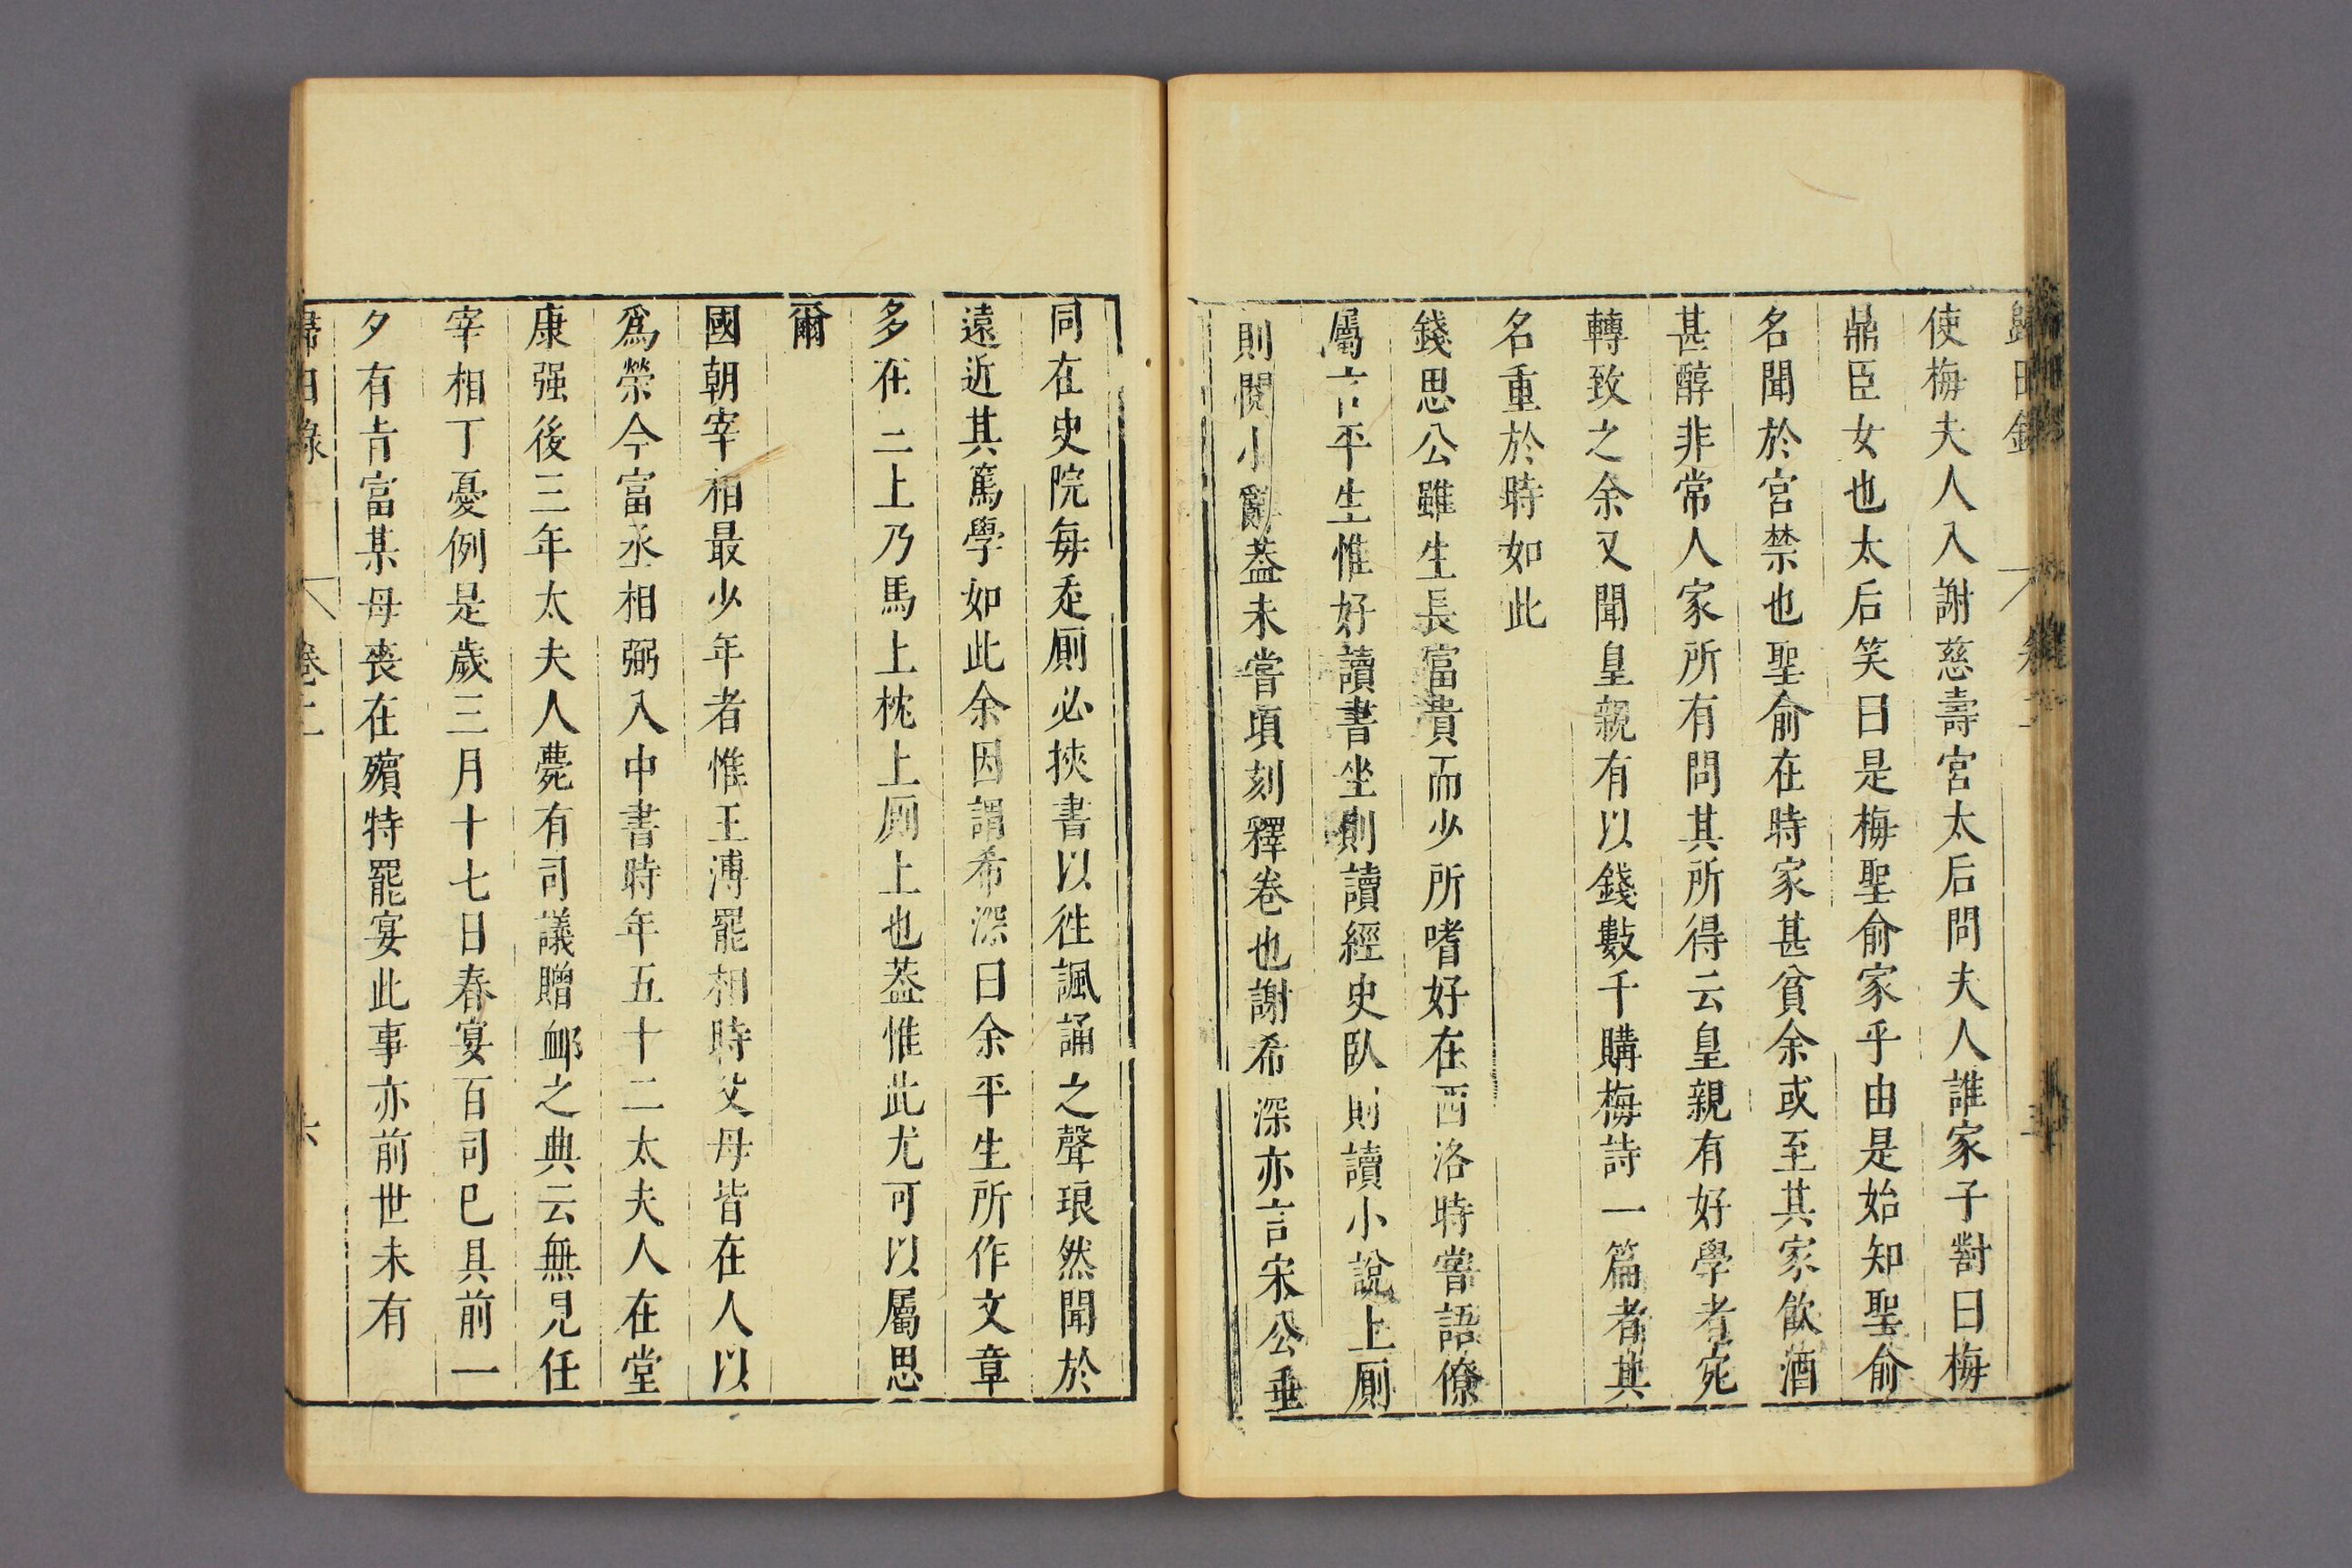 歸田錄 卷二
使梅夫人入謝慈壽宮太后問夫人誰家子對曰梅
鼎臣女也太后笑曰是梅聖俞家乎由是始知聖俞
名聞於宮禁也聖俞在時家甚貧余或至其家飲酒
甚醇非常人家所有問其所得云皇親有好學者宛
轉致之余又聞皇親有以錢數千購梅詩一篇者其
名重於時如此
錢思公雖生長富貴而少所嗜好在西洛時嘗語僚
屬言平生惟好讀書坐則讀經史臥則讀小說上厠
則閱小辭葢未嘗頃刻釋卷也謝希深亦言宋公垂
同在史院每走厠必挾書以徃諷誦之聲琅然聞於
遠近其篤學如此余因謂希深曰余平生所作文章
多在三上乃馬上枕上厠上也葢惟此尤可以屬思
爾
國朝宰相最少年者惟王溥罷相時父母皆在人以
爲榮今富丞相弼入中書時年五十二太夫人在堂
康强後三年太夫人薨有司議贈䘏之典云無見任
宰相丁憂例是歲三月十七日春宴百司巳具前一
夕有㫖富某母喪在殯特罷宴此事亦前世未有
歸田錄 卷二 六